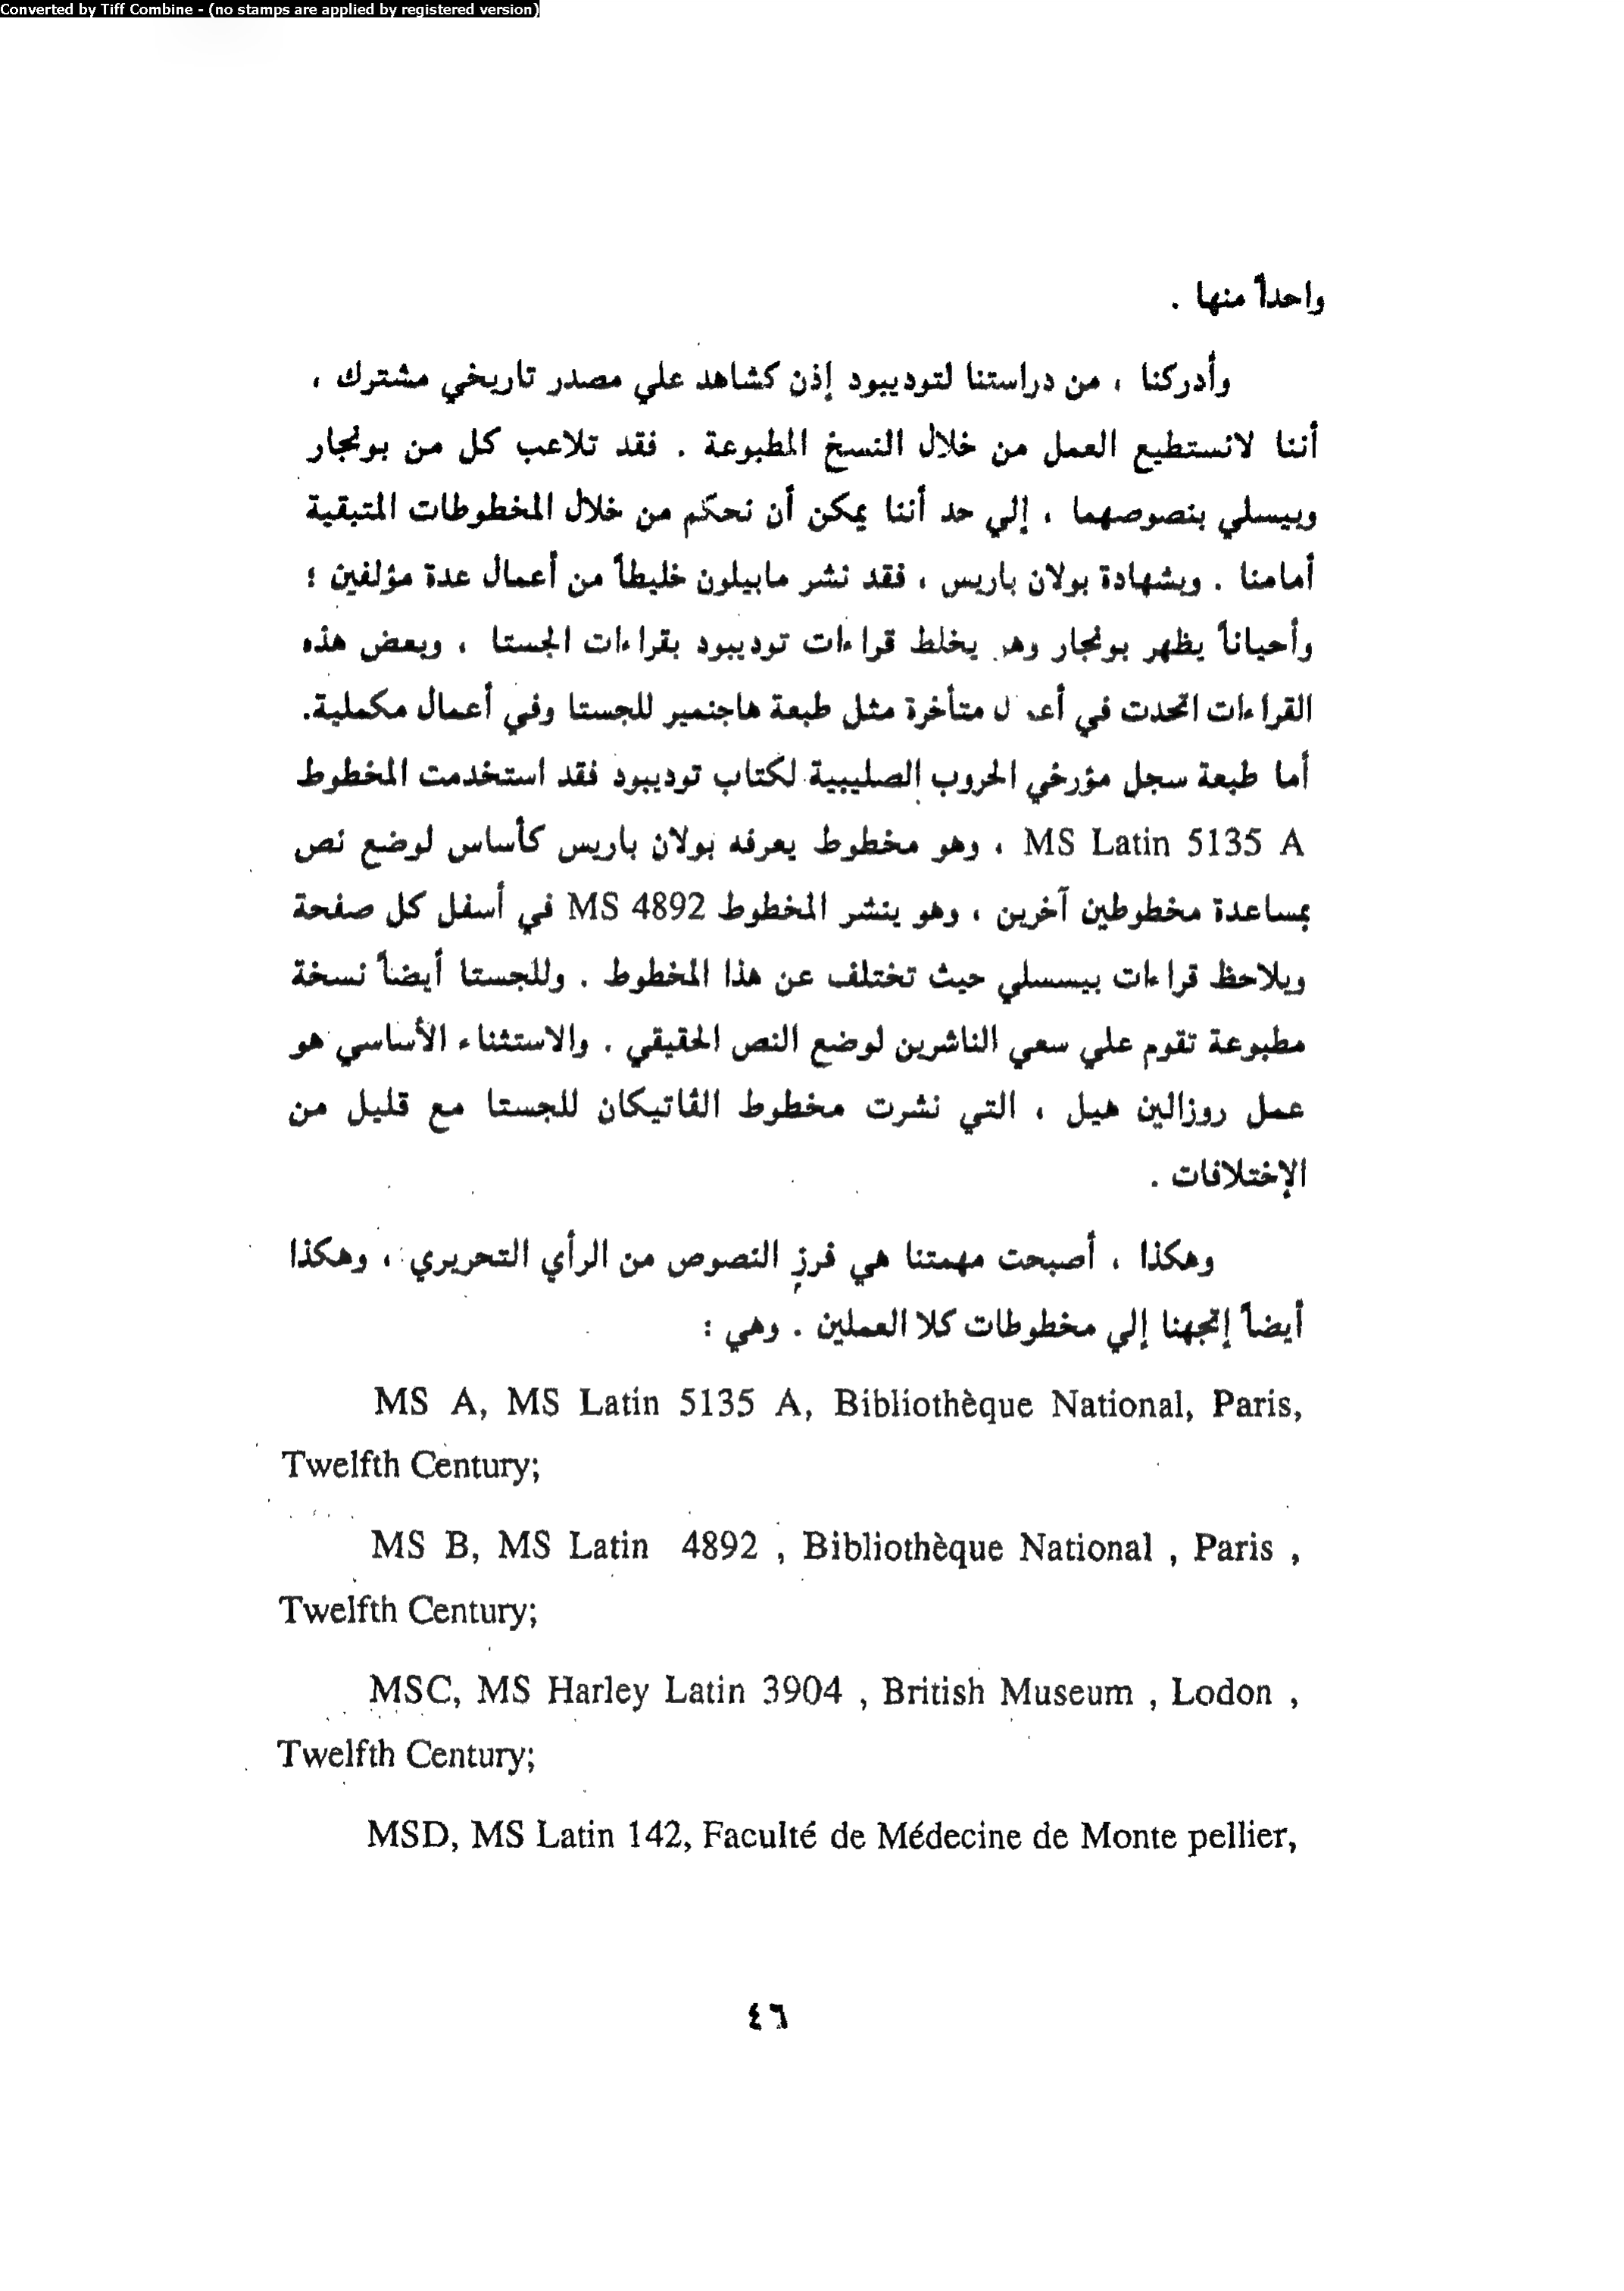 Converted by Tiff Combine - (no stamps are applied by registered version)
واحداً منها .
وأدركنا ، من دراستنا لتوديبود إذن كشاهد علي مصدر تاريخي مشترك ،
أننا لانستطيع العمل من خلال النسخ المطبوعة . فقد تلاعب كل من بونجار
وبيسلي بنصوصهما ، إلي حد أننا يمكن أن نحكم من خلال المخطوطات المتبقية
أمامنا . وبشهادة بولان باريس ، فقد نشر مابيلون خليطاً من أعمال عدة مؤلفين ؛
وأحياناً يظهر بونجار وهو يخلط قراءات توديبود بقراءات الجستا ، وبعض هذه
القراءات اتحدت في متأخرة مثل طبعة هاجنمير للجستا وفي أعمال مكملية.
أما طبعة سجل مؤرخي الحروب الصليبية لكتاب توديبود فقد استخدمت المخطوط
MS Latin 5135 A ، وهو مخطوط يعرفه بولان باريس كأساس لوضع نص
بمساعدة مخطوطين آخرين ، وهو ينشر المخطوط MS 4892 في أسفل كل صفحة
ويلاحظ قراءات بيسسلي حيث تختلف عن هذا المخطوط . وللجستا أيضاً نسخة
مطبوعة تقوم علي سعي الناشرين لوضع النص الحقيقي . والاستثناء الأساسي هو
عمل روزالين هيل ، التي نشرت مخطوط الڤاتيكان للجستا مع قليل من
الإختلافات .
وهكذا ، أصبحت مهمتنا هي فرزِ النصوص من الرأي التحريري ، وهكذا
أيضاً إتجهنا إلي مخطوطات كلا العملين . وهي :
MS A, MS Latin 5135 A, Bibliothèque National, Paris,
Twelfth Century;
MS B, MS Latin 4892 , Bibliothèque National , Paris ,
Twelfth Century;
MSC, MS Harley Latin 3904 , British Museum , Lodon ,
Twelfth Century;
MSD, MS Latin 142, Faculté de Médecine de Monte pellier,
٤٦